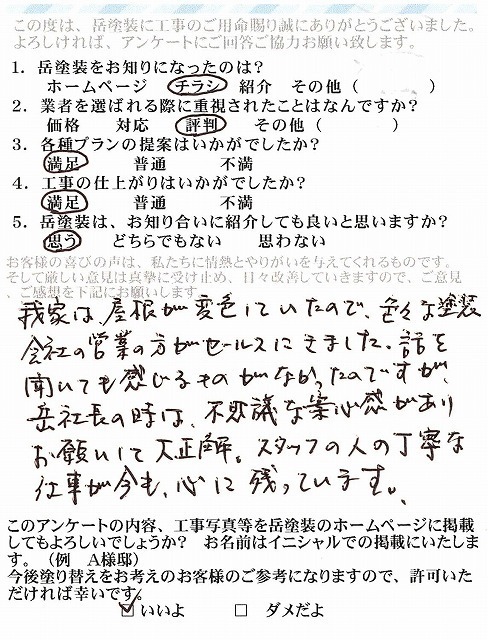 この度は、岳塗装に工事のご用命賜り誠にありがとうございました。
よろしければ、アンケートにご回答ご協力お願い致します。
1. 岳塗装をお知りになったのは？
ホームページ　チラシ　紹介　その他（　　　）
2. 業者を選ばれる際に重視されたことはなんですか？
価格　対応　評判　その他（　　　）
3. 各種プランの提案はいかがでしたか？
満足　普通　不満
4. 工事の仕上がりはいかがでしたか？
満足　普通　不満
5. 岳塗装は、お知り合いに紹介しても良いと思いますか？
思う　どちらでもない　思わない
お客様の喜びの声は、私たちに情熱とやりがいを与えてくれるものです。
そして厳しい意見は真摯に受け止め、日々改善していきますので、ご意見
、ご感想を下記にお願いします
我家は、屋根が変色していたので、色々な塗装
会社の営業の方がセールスにきました。話を
聞いても感じるものがなかったのですが、
岳社長の時は、不思議な安心感があり
お願いして大正解。スタッフの人の丁寧な
仕事が今も、心に残っています。
このアンケートの内容、工事写真等を岳塗装のホームページに掲載
してもよろしいでしょうか？　お名前はイニシャルでの掲載にいたしま
す。（例　A様邸）
今後塗り替えをお考えのお客様のご参考になりますので、許可いた
だければ幸いです。
☑ いいよ　□ ダメだよ